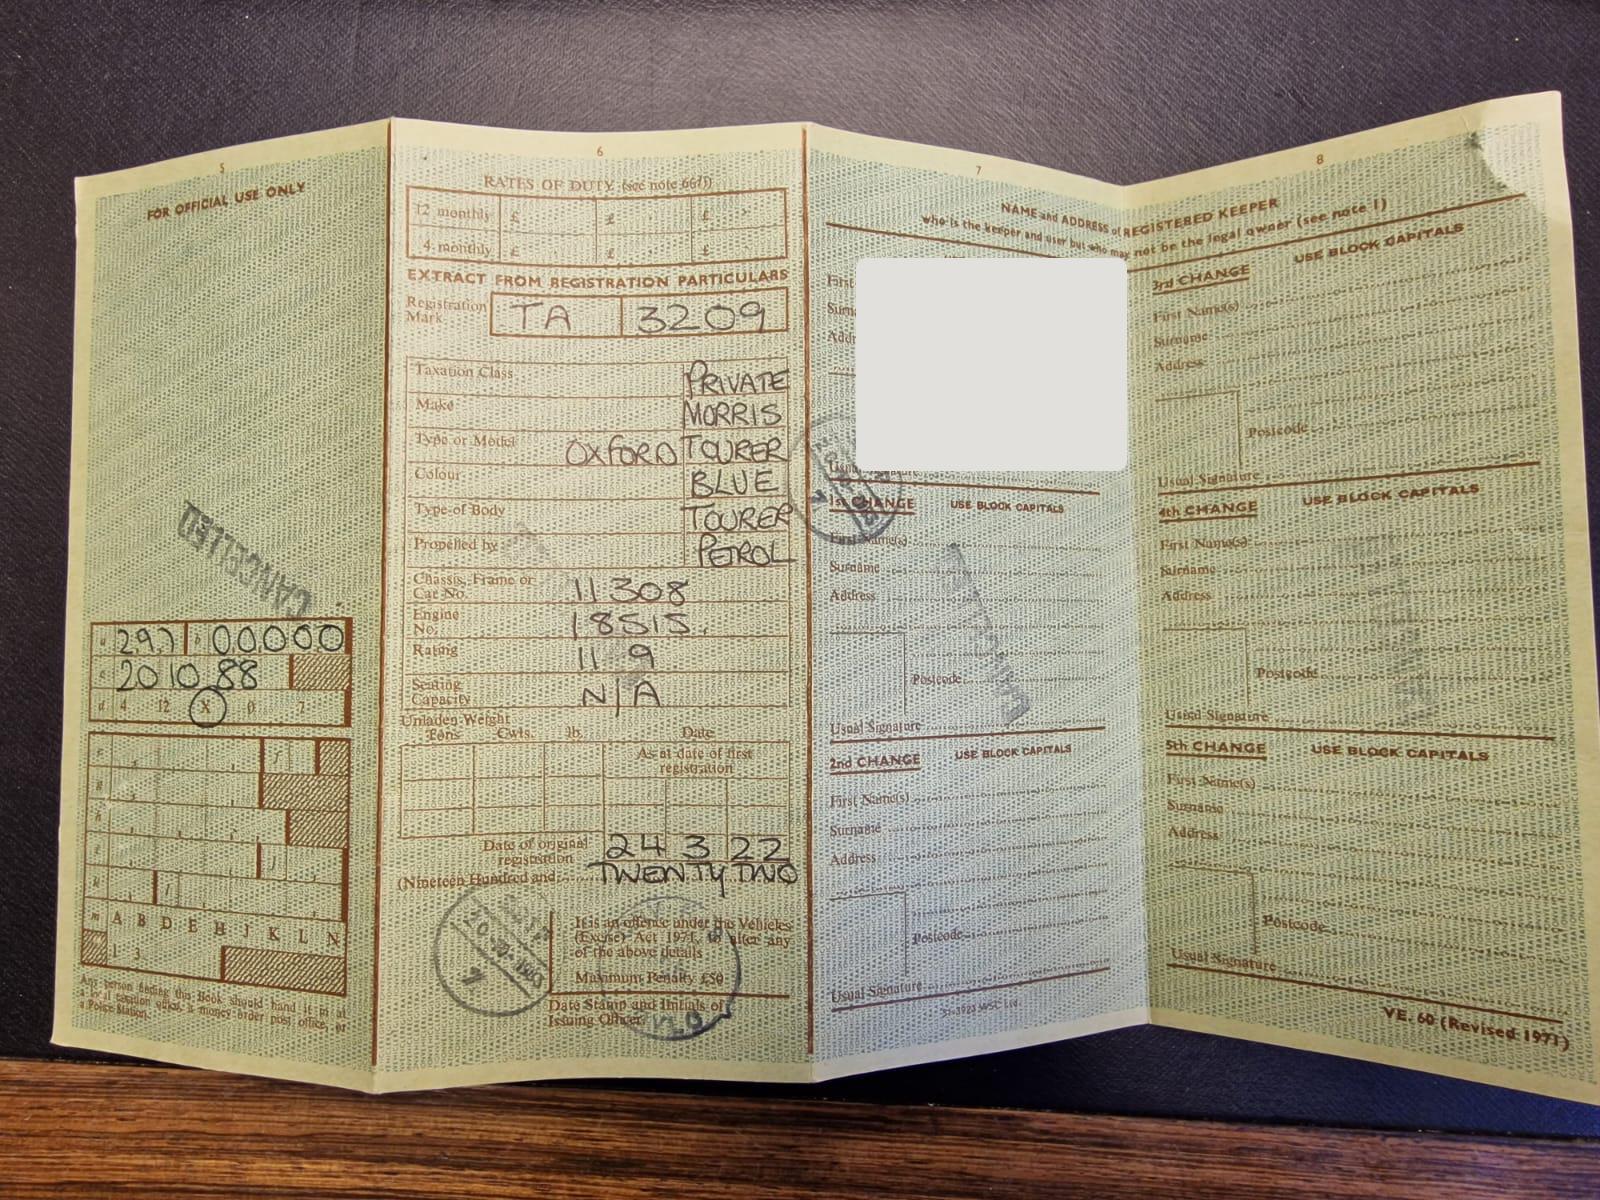 5
FOR OFFICIAL USE ONLY
CANCELLED
a 297 b 00000
c 20 10 88
d 4 12 X 0 7
e f
g
h
j
k l
m A B D E H J K L N
1 3
Any person finding this Book should hand it in at
or a Police Station.
6
RATES OF DUTY (see note 667)
12 monthly £ £ £
4 monthly £ £ £
EXTRACT FROM REGISTRATION PARTICULARS
Registration
Mark TA 3209
Taxation Class PRIVATE
Make MORRIS
Type or Model OXFORD TOURER
Colour BLUE
Type of Body TOURER
Propelled by PETROL
Chassis, Frame or
Car No. 11308
Engine
No. 18515.
Rating 11 9
Seating
Capacity N/A
Unladen Weight
Tons Cwts. lb. Date
As at date of first
registration
Date of original
registration 24 3 22
(Nineteen Hundred and TWENTY TWO
It is an offence under the Vehicles
(Excise) Act 1971, to alter any
of the above details
Maximum Penalty £50
Date Stamp and Initials of
Issuing Officer
7
8
NAME and ADDRESS of REGISTERED KEEPER
who is the keeper and user but who may not be the legal owner (see note 1)
First
Surn
Addr
Usual Signature
1st CHANGE USE BLOCK CAPITALS
First Name(s)
Surname
Address
Postcode
Usual Signature
2nd CHANGE USE BLOCK CAPITALS
First Name(s)
Surname
Address
Postcode
Usual Signature
3rd CHANGE USE BLOCK CAPITALS
First Name(s)
Surname
Address
Postcode
Usual Signature
4th CHANGE USE BLOCK CAPITALS
First Name(s)
Surname
Address
Postcode
Usual Signature
5th CHANGE USE BLOCK CAPITALS
First Name(s)
Surname
Address
Postcode
Usual Signature
CANCELLED
VE. 60 (Revised 1971)